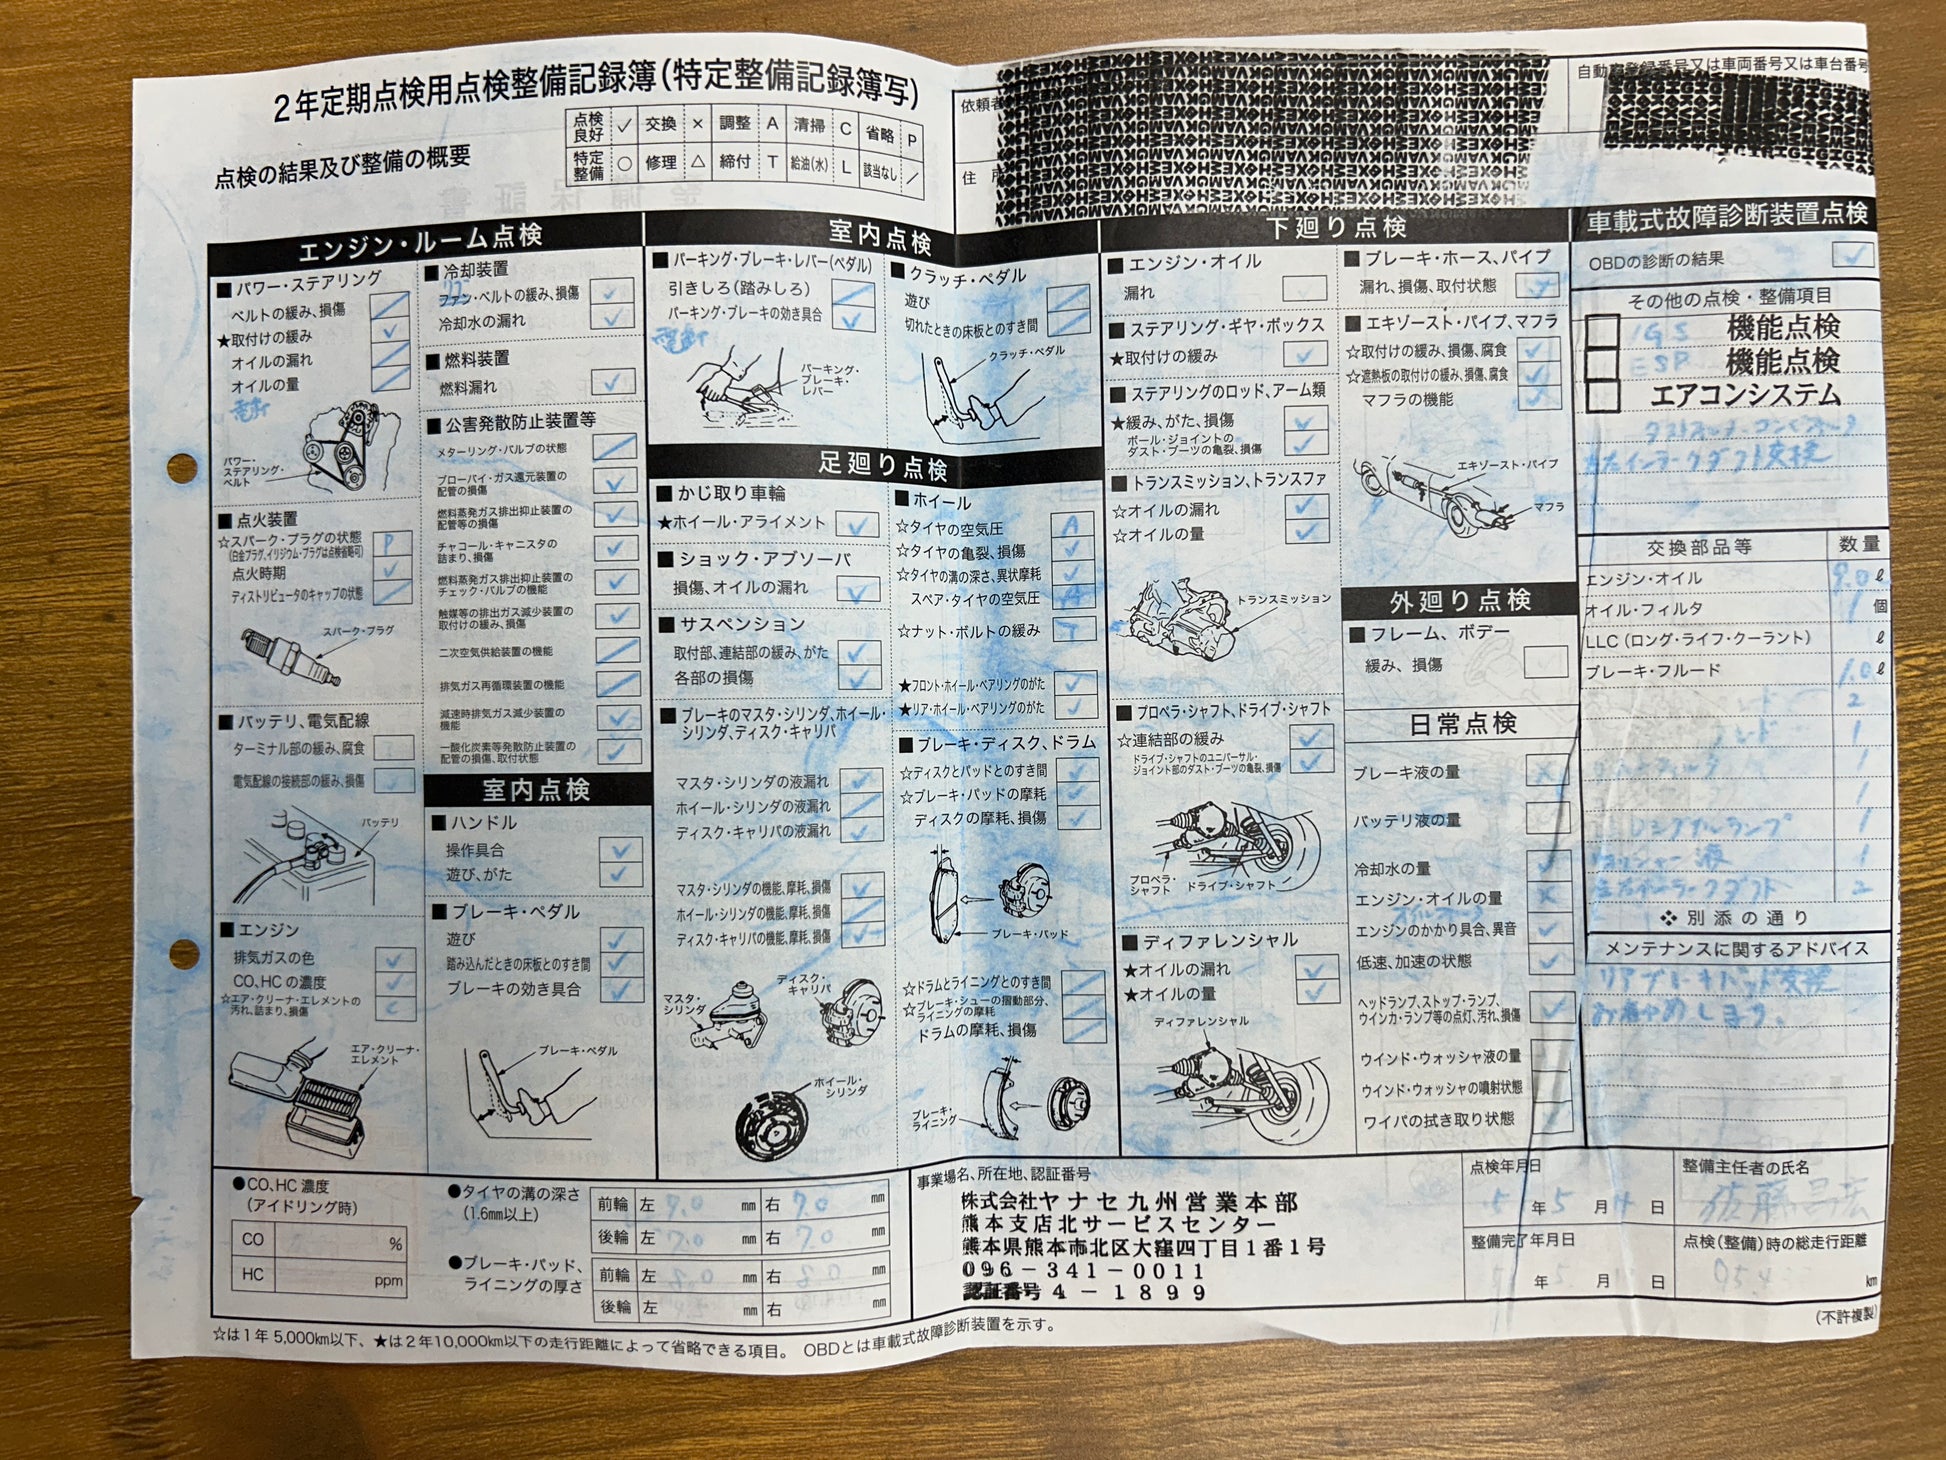 2年定期点検用点検整備記録簿(特定整備記録簿写)
点検の結果及び整備の概要
点検良好 ✓ 交換 × 調整 A 清掃 C 省略 P
特定整備 ○ 修理 △ 締付 T 給油(水) L 該当なし ／
依頼者
住所
自動車登録番号又は車両番号又は車台番号
エンジン・ルーム点検
■パワー・ステアリング
ベルトの緩み、損傷
★取付けの緩み ✓
オイルの漏れ
オイルの量
電動
パワー・ステアリング・ベルト
■点火装置
☆スパーク・プラグの状態 P
(白金プラグ、イリジウム・プラグは点検省略可)
点火時期 ✓
ディストリビュータのキャップの状態
スパーク・プラグ
■バッテリ、電気配線
ターミナル部の緩み、腐食
電気配線の接続部の緩み、損傷
バッテリ
■エンジン
排気ガスの色 ✓
CO、HCの濃度 ✓
☆エア・クリーナ・エレメントの汚れ、詰まり、損傷 C
エア・クリーナ・エレメント
■冷却装置
ファン・ベルトの緩み、損傷 ✓
冷却水の漏れ ✓
■燃料装置
燃料漏れ ✓
■公害発散防止装置等
メターリング・バルブの状態
ブローバイ・ガス還元装置の配管の損傷 ✓
燃料蒸発ガス排出抑止装置の配管等の損傷 ✓
チャコール・キャニスタの詰まり、損傷 ✓
燃料蒸発ガス排出抑止装置のチェック・バルブの機能 ✓
触媒等の排出ガス減少装置の取付けの緩み、損傷 ✓
二次空気供給装置の機能
排気ガス再循環装置の機能
減速時排気ガス減少装置の機能 ✓
一酸化炭素等発散防止装置の配管の損傷、取付状態 ✓
室内点検
■ハンドル
操作具合 ✓
遊び、がた ✓
■ブレーキ・ペダル
遊び ✓
踏み込んだときの床板とのすき間 ✓
ブレーキの効き具合 ✓
ブレーキ・ペダル
室内点検
■パーキング・ブレーキ・レバー(ペダル)
引きしろ(踏みしろ)
パーキング・ブレーキの効き具合 ✓
電動
パーキング・ブレーキ・レバー
■クラッチ・ペダル
遊び
切れたときの床板とのすき間
クラッチ・ペダル
足廻り点検
■かじ取り車輪
★ホイール・アライメント ✓
■ショック・アブソーバ
損傷、オイルの漏れ ✓
■サスペンション
取付部、連結部の緩み、がた ✓
各部の損傷 ✓
■ブレーキのマスタ・シリンダ、ホイール・シリンダ、ディスク・キャリパ
マスタ・シリンダの液漏れ ✓
ホイール・シリンダの液漏れ
ディスク・キャリパの液漏れ ✓
マスタ・シリンダの機能、摩耗、損傷 ✓
ホイール・シリンダの機能、摩耗、損傷
ディスク・キャリパの機能、摩耗、損傷 ✓
マスタ・シリンダ
ディスク・キャリパ
ホイール・シリンダ
■ホイール
☆タイヤの空気圧 A
☆タイヤの亀裂、損傷 ✓
☆タイヤの溝の深さ、異状摩耗 ✓
スペア・タイヤの空気圧
☆ナット・ボルトの緩み T
★フロント・ホイール・ベアリングのがた ✓
★リア・ホイール・ベアリングのがた ✓
■ブレーキ・ディスク、ドラム
☆ディスクとパッドとのすき間 ✓
☆ブレーキ・パッドの摩耗 ✓
ディスクの摩耗、損傷 ✓
ブレーキ・パッド
☆ドラムとライニングとのすき間
☆ブレーキ・シューの摺動部分、ライニングの摩耗
ドラムの摩耗、損傷
ブレーキ・ライニング
下廻り点検
■エンジン・オイル
漏れ
■ステアリング・ギヤ・ボックス
★取付けの緩み ✓
■ステアリングのロッド、アーム類
★緩み、がた、損傷 ✓
ボール・ジョイントのダスト・ブーツの亀裂、損傷 ✓
■トランスミッション、トランスファ
☆オイルの漏れ ✓
☆オイルの量 ✓
トランスミッション
■プロペラ・シャフト、ドライブ・シャフト
☆連結部の緩み ✓
ドライブ・シャフトのユニバーサル・ジョイント部のダスト・ブーツの亀裂、損傷 ✓
プロペラ・シャフト
ドライブ・シャフト
■ディファレンシャル
★オイルの漏れ ✓
★オイルの量 ✓
ディファレンシャル
■ブレーキ・ホース、パイプ
漏れ、損傷、取付状態
■エキゾースト・パイプ、マフラ
☆取付けの緩み、損傷、腐食 ✓
☆遮熱板の取付けの緩み、損傷、腐食 ✓
マフラの機能 ✓
エキゾースト・パイプ
マフラ
外廻り点検
■フレーム、ボデー
緩み、損傷
日常点検
ブレーキ液の量 ×
バッテリ液の量
冷却水の量 ✓
エンジン・オイルの量 ×
エンジンのかかり具合、異音 ✓
低速、加速の状態 ✓
ヘッドランプ、ストップ・ランプ、ウインカ・ランプ等の点灯、汚れ、損傷 ✓
ウインド・ウォッシャ液の量
ウインド・ウォッシャの噴射状態
ワイパの拭き取り状態
車載式故障診断装置点検
OBDの診断の結果 ✓
その他の点検・整備項目
機能点検
ESP 機能点検
エアコンシステム
交換部品等 数量
エンジン・オイル 9.0 ℓ
オイル・フィルタ 1 個
LLC(ロング・ライフ・クーラント) ℓ
ブレーキ・フルード 1.0 ℓ
2
1
1
1
1
1
2
❖別添の通り
メンテナンスに関するアドバイス
リアブレーキパッド交換
お奨めします。
●CO、HC濃度
(アイドリング時)
CO %
HC ppm
●タイヤの溝の深さ
(1.6mm以上)
前輪 左 7.0 mm 右 7.0 mm
後輪 左 7.0 mm 右 7.0 mm
●ブレーキ・パッド、ライニングの厚さ
前輪 左 8.0 mm 右 8.0 mm
後輪 左 mm 右 mm
事業場名、所在地、認証番号
株式会社ヤナセ九州営業本部
熊本支店北サービスセンター
熊本県熊本市北区大窪四丁目1番1号
096-341-0011
認証番号 4-1899
点検年月日
5年5月 日
整備完了年月日
年5月 日
整備主任者の氏名
点検(整備)時の総走行距離
km
(不許複製)
☆は1年5,000km以下、★は2年10,000km以下の走行距離によって省略できる項目。 OBDとは車載式故障診断装置を示す。